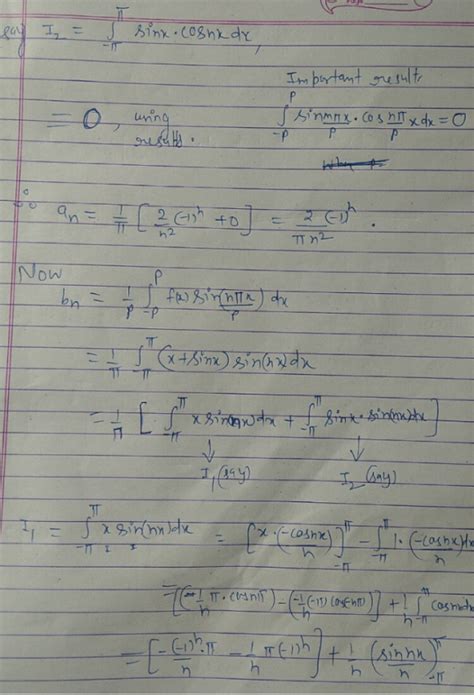 say I₂ = ∫_{-π}^{π} sinx · cosnx dx,
Important result
= 0, using results.
∫_{-p}^{p} sin mπx/p · cos nπ/p x dx = 0
∴ aₙ = 1/π [2/n² (-1)ⁿ + 0] = 2(-1)ⁿ/πn² .
Now
bₙ = 1/p ∫_{-p}^{p} f(x) sin(nπx/p) dx
= 1/π ∫_{-π}^{π} (x+sinx) sin(nx) dx
= 1/π [∫_{-π}^{π} x sin(nx) dx + ∫_{-π}^{π} sinx · sin(nx) dx]
↓ ↓
I₁ (say) I₂ (say)
I₁ = ∫_{-π}^{π} x sin(nx) dx = [x · (-cosnx)/n]_{-π}^{π} - ∫_{-π}^{π} 1 · (-cosnx)/n dx
= [(-1/n π · cosnπ) - (-1/n (-π) cos(-nπ))] + 1/n ∫_{-π}^{π} cosnx dx
= [-(-1)ⁿ · π/n - 1/n π (-1)ⁿ] + 1/n (sin nx/n)_{-π}^{π}